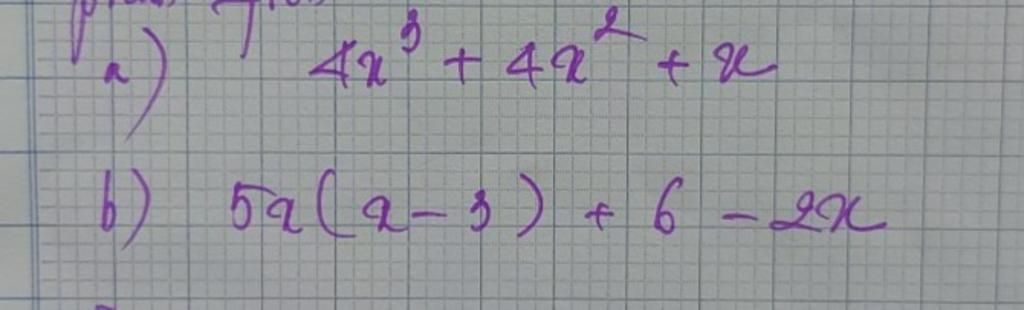 a) 4x³ + 4x² + x
b) 5x(x - 3) + 6 - 2x